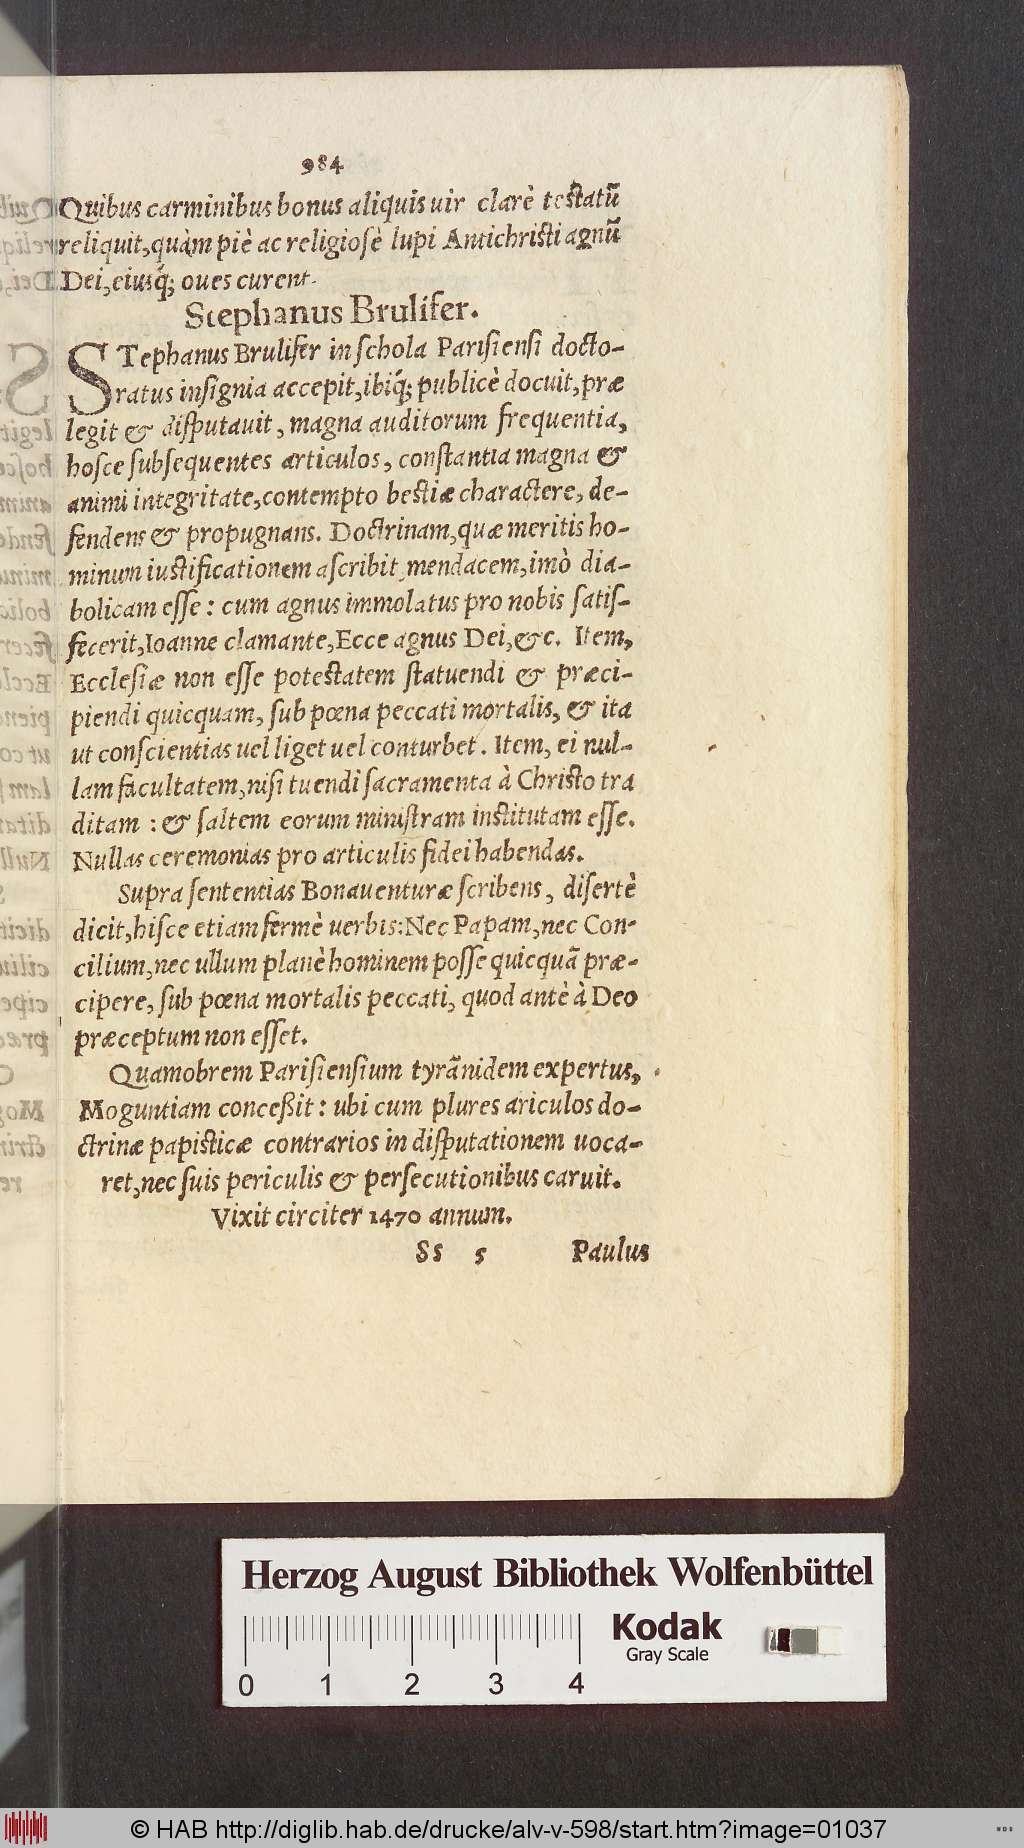 984
Quibus carminibus bonus aliquis uir clarè testatũ
reliquit, quàm piè ac religiosè lupi Antichristi agnũ
Dei, eiusq́; oues curent.
Stephanus Brulifer.
STephanus Brulifer in schola Parisiensi docto-
ratus insignia accepit, ibiq́; publicè docuit, præ
legit & disputauit, magna auditorum frequentia,
hosce subsequentes articulos, constantia magna &
animi integritate, contempto bestiæ charactere, de-
fendens & propugnans. Doctrinam, quæ meritis ho-
minum iustificationem ascribit mendacem, imò dia-
bolicam esse: cum agnus immolatus pro nobis satis-
fecerit, Ioanne clamante, Ecce agnus Dei, &c. Item,
Ecclesiæ non esse potestatem statuendi & præci-
piendi quicquam, sub pœna peccati mortalis, & ita
ut conscientias uel liget uel conturbet. Item, ei nul-
lam facultatem, nisi tuendi sacramenta à Christo tra
ditam: & saltem eorum ministram institutam esse.
Nullas ceremonias pro articulis fidei habendas.
Supra sententias Bonauenturæ scribens, disertè
dicit, hisce etiam fermè uerbis: Nec Papam, nec Con-
cilium, nec ullum planè hominem posse quicquã præ-
cipere, sub pœna mortalis peccati, quod antè à Deo
præceptum non esset.
Quamobrem Parisiensium tyrãnidem expertus,
Moguntiam conceßit: ubi cum plures ariculos do-
ctrinæ papisticæ contrarios in disputationem uoca-
ret, nec suis periculis & persecutionibus caruit.
Vixit circiter 1470 annum.
Ss 5 Paulus
Herzog August Bibliothek Wolfenbüttel
Kodak
Gray Scale
0 1 2 3 4
© HAB http://diglib.hab.de/drucke/alv-v-598/start.htm?image=01037